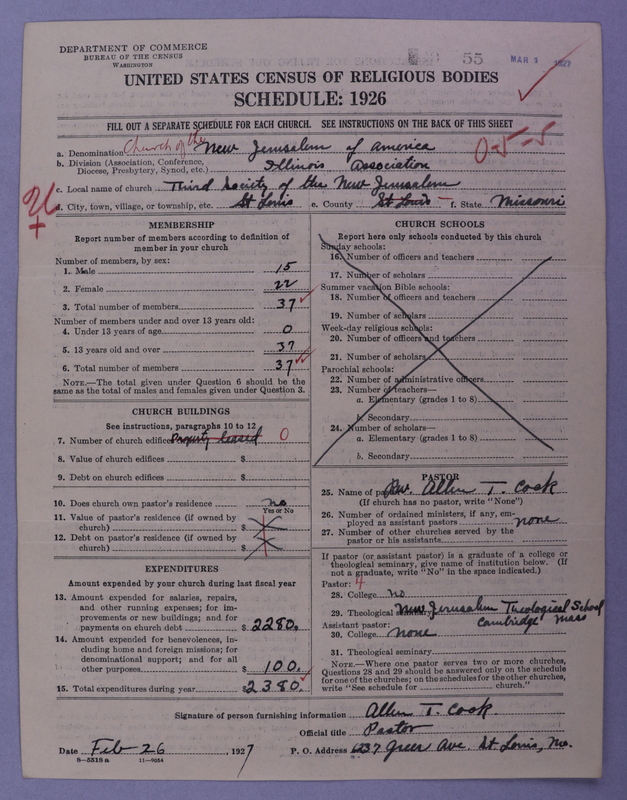 DEPARTMENT OF COMMERCE
BUREAU OF THE CENSUS
WASHINGTON
55
MAR 3 1927
UNITED STATES CENSUS OF RELIGIOUS BODIES
SCHEDULE: 1926
FILL OUT A SEPARATE SCHEDULE FOR EACH CHURCH. SEE INSTRUCTIONS ON THE BACK OF THIS SHEET
a. Denomination Church of the New Jerusalem of America
0-5-5
b. Division (Association, Conference, Diocese, Presbytery, Synod, etc.) Illinois Association
c. Local name of church Third Society of the New Jerusalem
d. City, town, village, or township, etc. St Louis e. County St Louis f. State Missouri
MEMBERSHIP
Report number of members according to definition of
member in your church
Number of members, by sex:
1. Male 15
2. Female 22
3. Total number of members 37
Number of members under and over 13 years old:
4. Under 13 years of age 0
5. 13 years old and over 37
6. Total number of members 37
NOTE.—The total given under Question 6 should be the
same as the total of males and females given under Question 3.
CHURCH BUILDINGS
See instructions, paragraphs 10 to 12
7. Number of church edifices Property leased 0
8. Value of church edifices $
9. Debt on church edifices $
10. Does church own pastor's residence no
Yes or No
11. Value of pastor's residence (if owned by
church) $
12. Debt on pastor's residence (if owned by
church) $
EXPENDITURES
Amount expended by your church during last fiscal year
13. Amount expended for salaries, repairs,
and other running expenses; for im-
provements or new buildings; and for
payments on church debt $ 2280.
14. Amount expended for benevolences, in-
cluding home and foreign missions; for
denominational support; and for all
other purposes $ 100.
15. Total expenditures during year $ 2380.
CHURCH SCHOOLS
Report here only schools conducted by this church
Sunday schools:
16. Number of officers and teachers
17. Number of scholars
Summer vacation Bible schools:
18. Number of officers and teachers
19. Number of scholars
Week-day religious schools:
20. Number of officers and teachers
21. Number of scholars
Parochial schools:
22. Number of administrative officers
23. Number of teachers—
a. Elementary (grades 1 to 8)
b. Secondary
24. Number of scholars—
a. Elementary (grades 1 to 8)
b. Secondary
PASTOR
25. Name of pastor Rev. Allen T. Cook
(If church has no pastor, write "None")
26. Number of ordained ministers, if any, em-
ployed as assistant pastors none
27. Number of other churches served by the
pastor or his assistants
If pastor (or assistant pastor) is a graduate of a college or
theological seminary, give name of institution below. (If
not a graduate, write "No" in the space indicated.)
Pastor:
28. College no
29. Theological seminary New Jerusalem Theological School
Cambridge Mass
Assistant pastor:
30. College none
31. Theological seminary
NOTE.—Where one pastor serves two or more churches,
Questions 28 and 29 should be answered only on the schedule
for one of the churches; on the schedules for the other churches,
write "See schedule for church."
Signature of person furnishing information Allen T. Cook.
Official title Pastor
Date Feb 26, 1927 P. O. Address Greer Ave. St Louis, Mo.
8—5518 a 11—9054